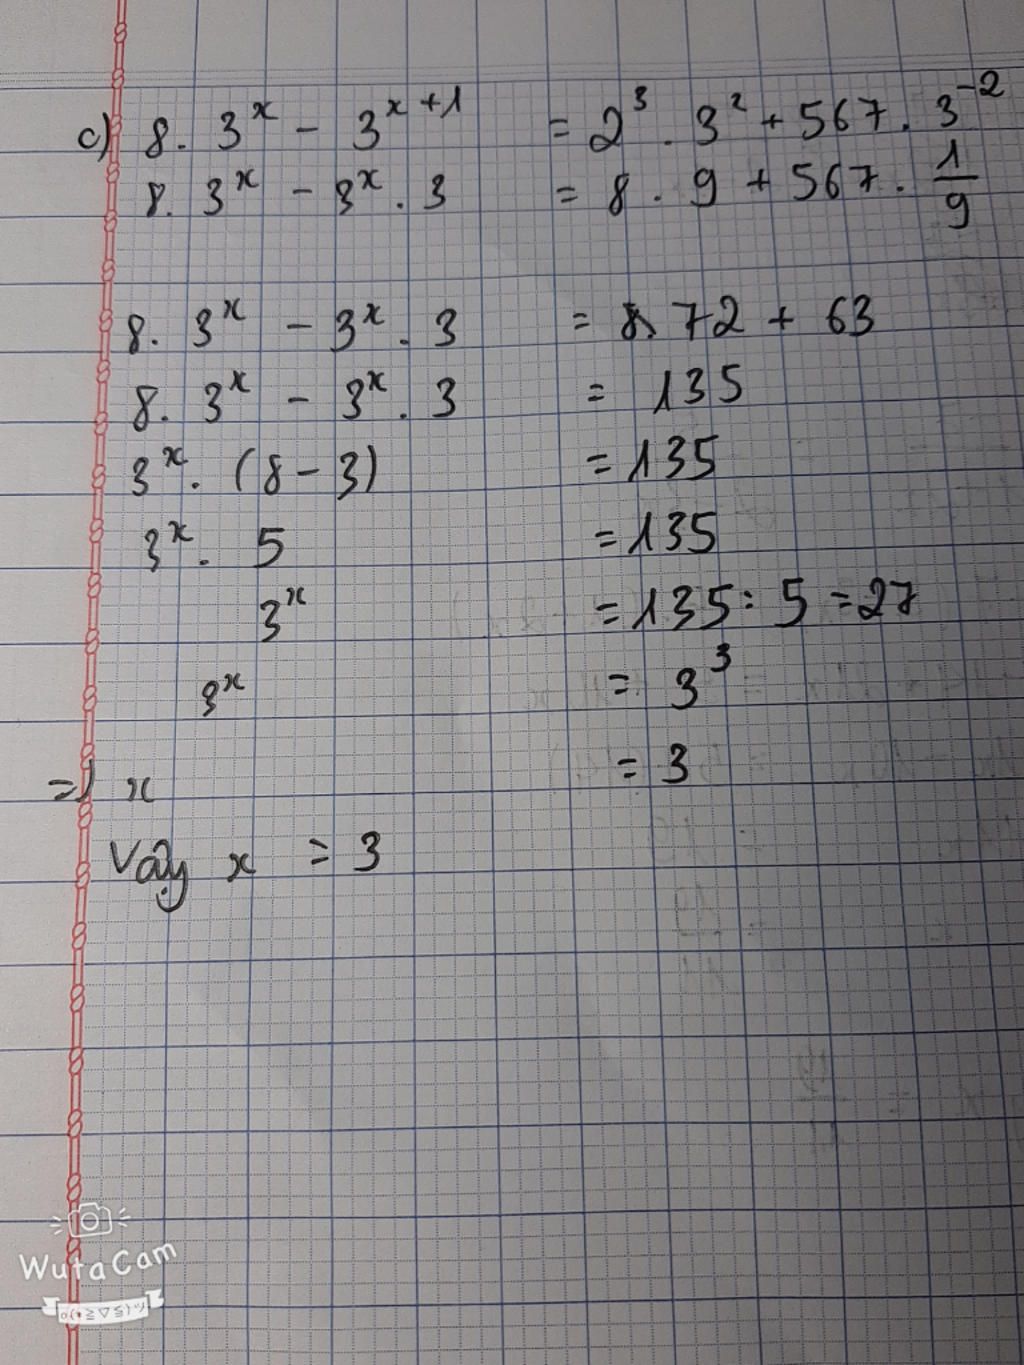 c) 8. 3^x - 3^{x+1} = 2^3 . 3^2 + 567 . 3^{-2}
8. 3^x - 3^x . 3 = 8 . 9 + 567 . 1/9
8. 3^x - 3^x . 3 = 72 + 63
8. 3^x - 3^x . 3 = 135
3^x . (8 - 3) = 135
3^x . 5 = 135
3^x = 135 : 5 = 27
3^x = 3^3
=> x = 3
Vậy x = 3
WutaCam